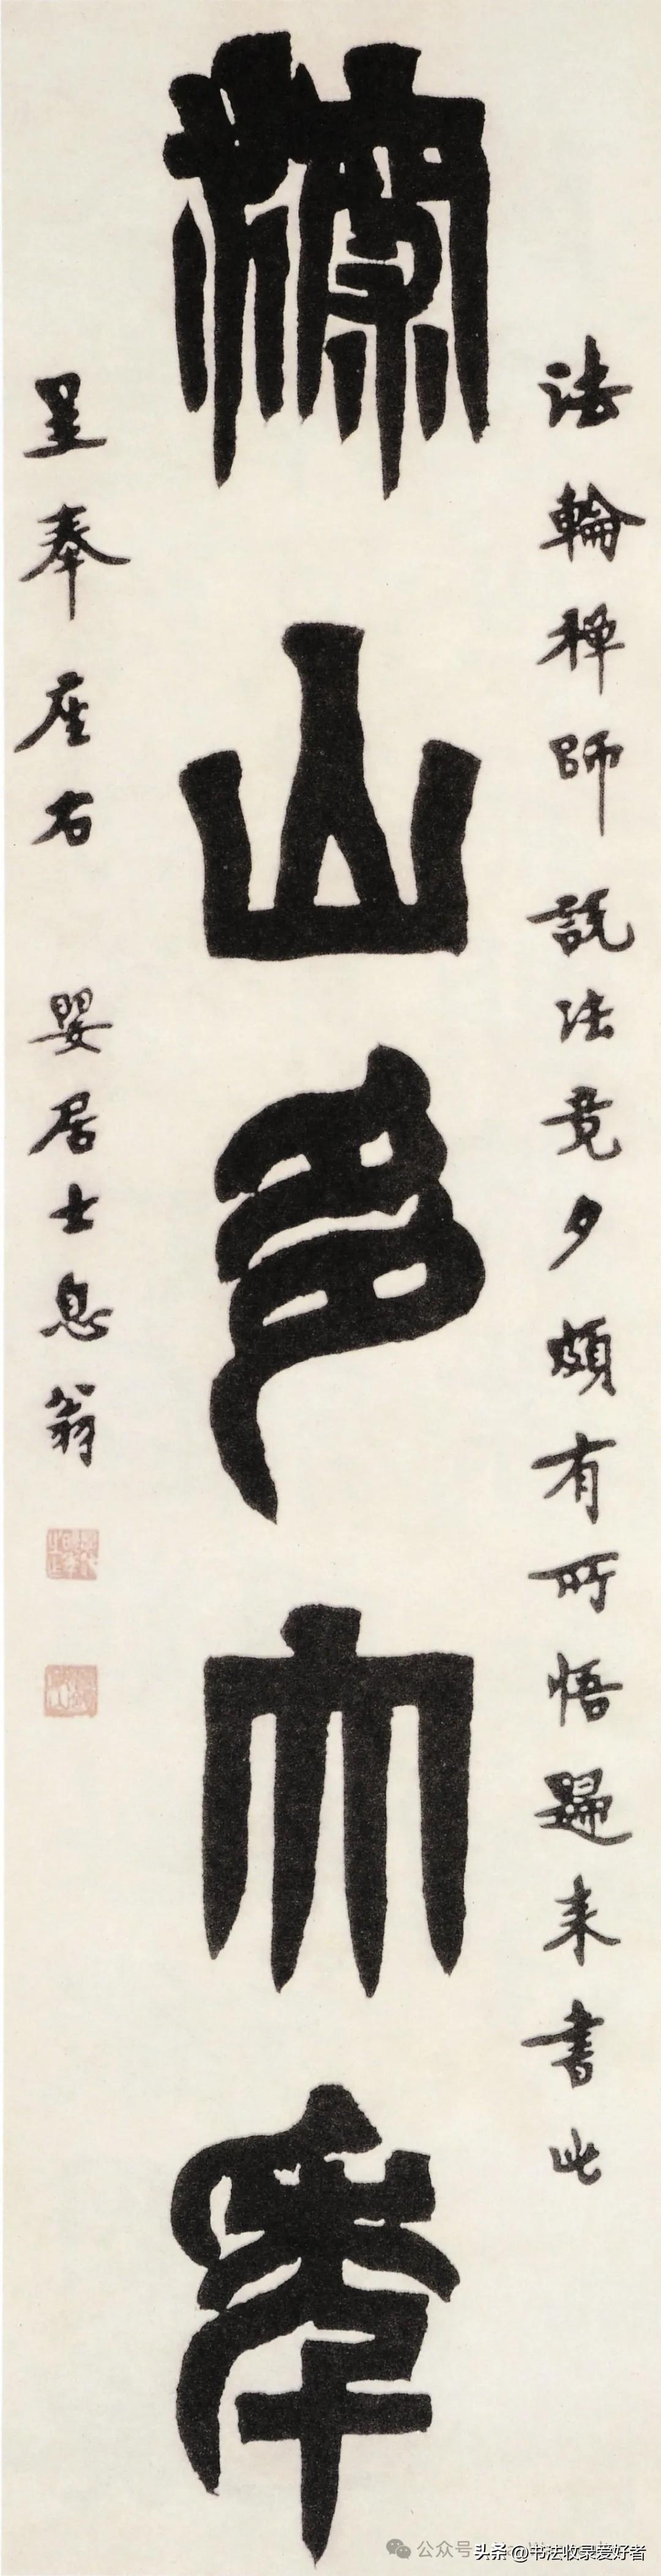 法輪禅師說法竟夕頗有所悟歸来書此
深山多大年
呈奉座右 嬰居士息翁
公众号
头条 @书法收录爱好者